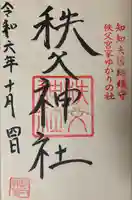 知知夫国総鎮守
秩父宮家ゆかりの社
秩父神社
令和六年十月四日